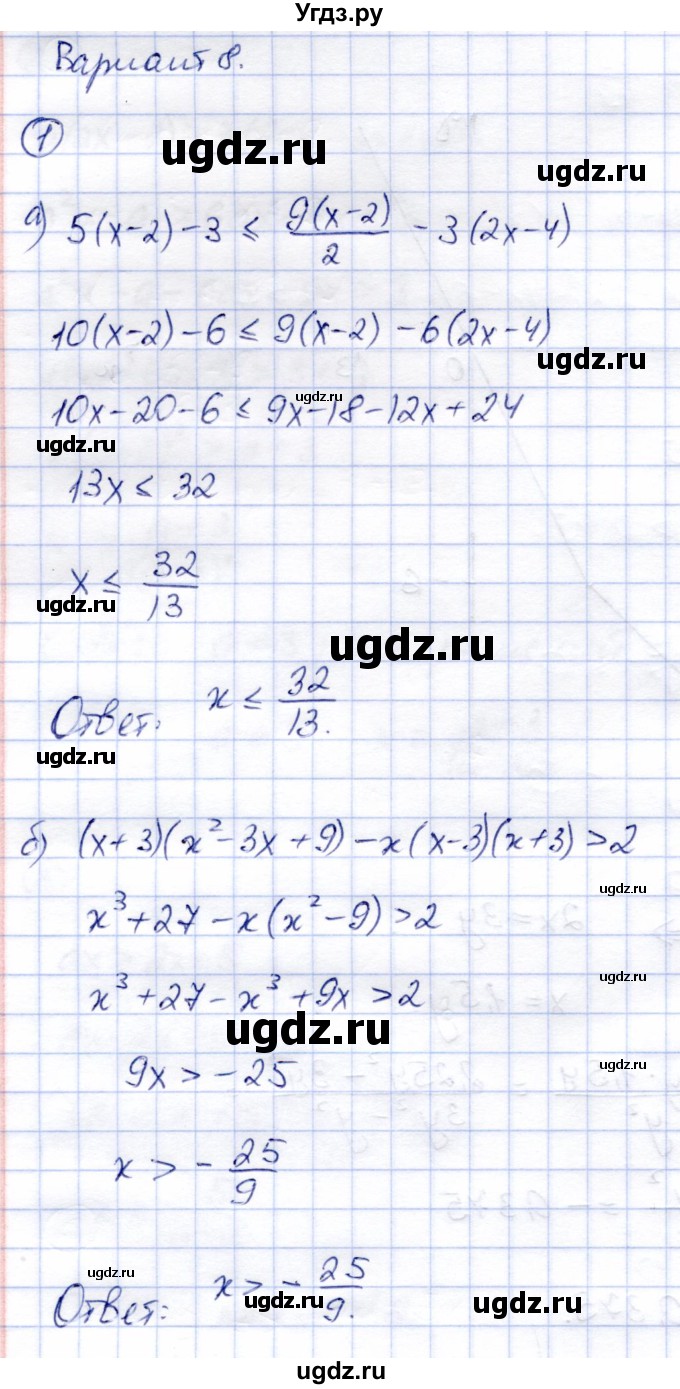 Угдз.ру
Вариант 8.
1
ugdz.ru
ugdz.ru
а) 5(x-2)-3 ≤ 9(x-2)/2 - 3(2x-4)
10(x-2)-6 ≤ 9(x-2) - 6(2x-4)
ugdz.ru
ugdz.ru
10x-20-6 ≤ 9x-18-12x+24
ugdz.ru
13x ≤ 32
x ≤ 32/13
ugdz.ru
ugdz.ru
Ответ: x ≤ 32/13.
ugdz.ru
б) (x+3)(x²-3x+9)-x(x-3)(x+3)>2
ugdz.ru
x³+27-x(x²-9)>2
ugdz.ru
x³+27-x³+9x>2
ugdz.ru
ugdz.ru
9x>-25
x > - 25/9
ugdz.ru
Ответ: x > - 25/9.
ugdz.ru
ugdz.ru
ugdz.ru